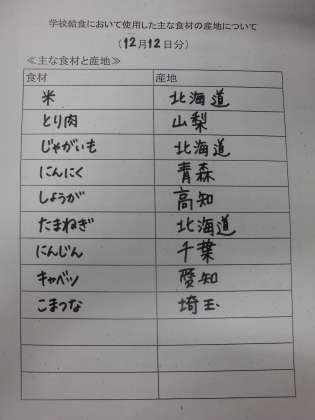 学校給食において使用した主な食材の産地について
(12月12日分)
≪主な食材と産地≫
食材 産地
米 北海道
とり肉 山梨
じゃがいも 北海道
にんにく 青森
しょうが 高知
たまねぎ 北海道
にんじん 千葉
キャベツ 愛知
こまつな 埼玉